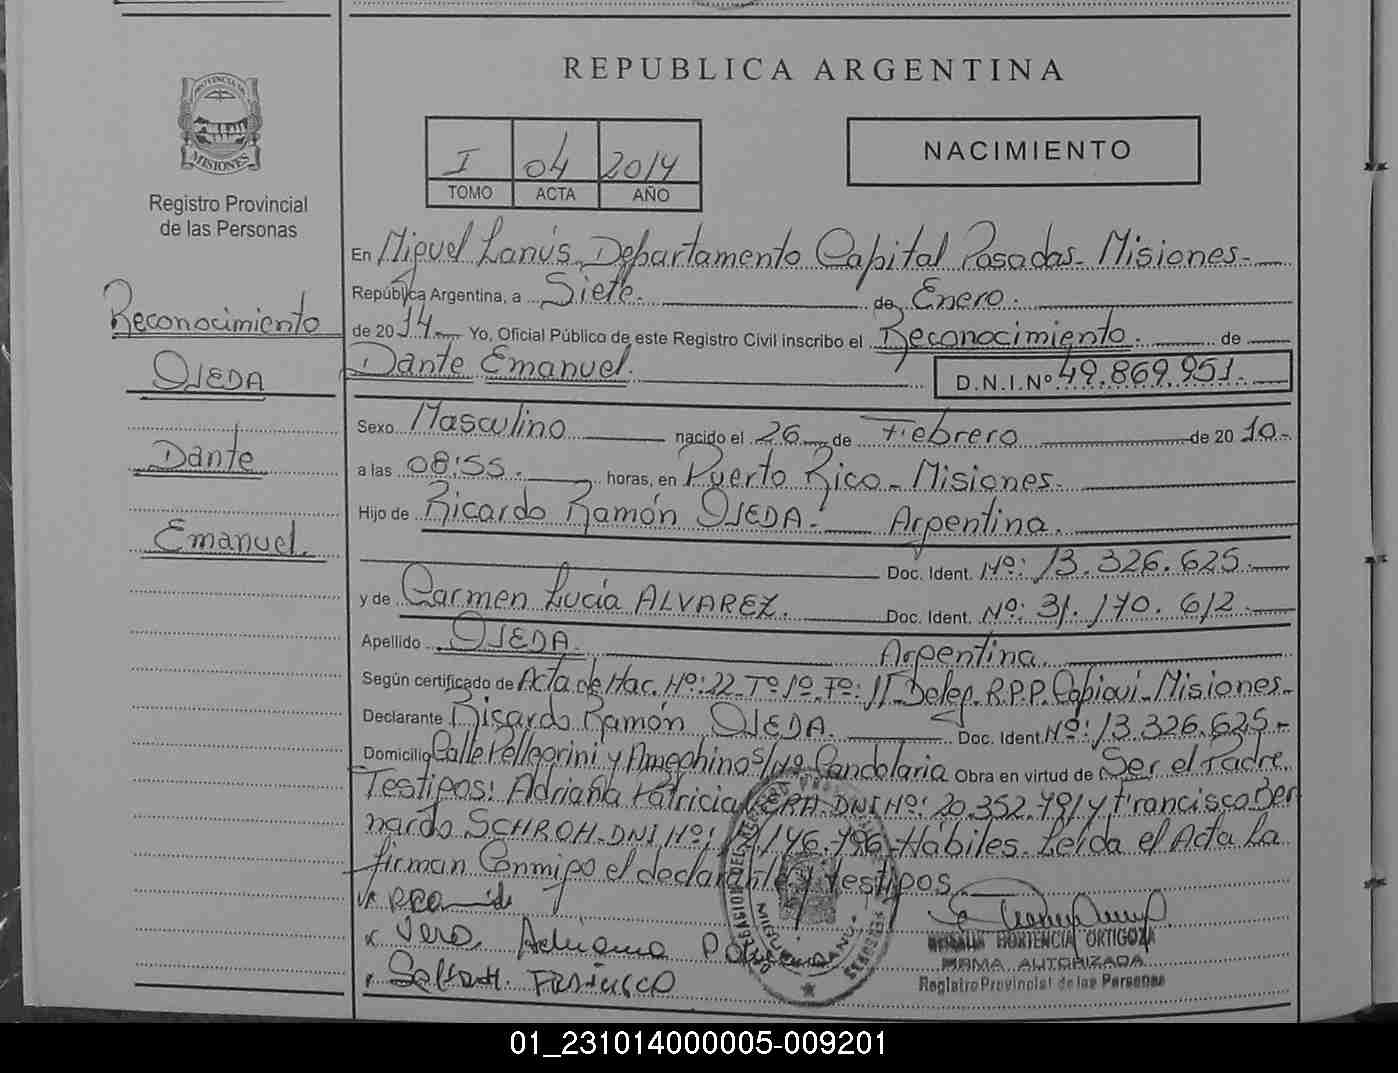 REPUBLICA ARGENTINA
PROVINCIA DE
MISIONES
Registro Provincial
de las Personas
I 04 2014
TOMO ACTA AÑO
NACIMIENTO
Reconocimiento
OJEDA
Dante
Emanuel.
En Miguel Lanús. Departamento Capital Posadas- Misiones-
República Argentina, a Siete. de Enero.
de 2014. Yo, Oficial Público de este Registro Civil inscribo el Reconocimiento. de
Dante Emanuel. D.N.I.Nº 49.869.951.
Sexo Masculino nacido el 26 de Febrero de 2010-
a las 08:55. horas, en Puerto Rico - Misiones.
Hijo de Ricardo Ramón OJEDA.- Argentina.
Doc. Ident. Nº: 13.326.625.
y de Carmen Lucía ALVAREZ. Doc. Ident. Nº: 31.170.612.
Apellido OJEDA. Argentina.
Según certificado de Acta de Nac. Nº:22-Tº1º-Fº:11-Deleg. R.P.P. Capioví-Misiones-
Declarante Ricardo Ramón OJEDA. Doc. Ident. Nº:13.326.625.-
Domicilio Calle Pellegrini y Ameghino S/Nº Candelaria Obra en virtud de Ser el Padre.
Testigos: Adriana Patricia VERA-DNI Nº: 20.352.791 y Francisco Ber
nardo SCHROH-DNI Nº: 146.796-Hábiles. Leída el Acta La
firman Conmigo el declarante y testigos.
Vera, Adriana
Francisco
HORTENCIA ORTIGOZA
FIRMA AUTORIZADA
Registro Provincial de las Personas
01_231014000005-009201